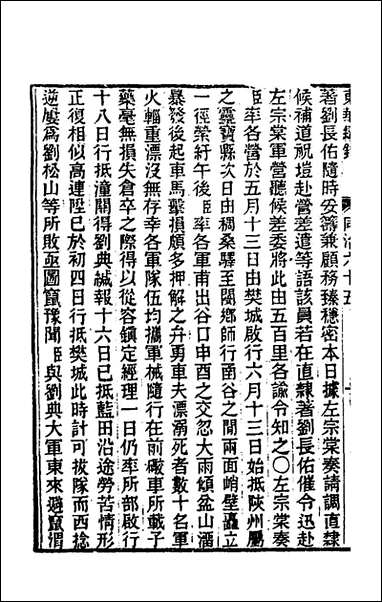 東華續錄　同治六十五
著劉長佑隨時妥籌兼顧務臻穩密本日據左宗棠奏請調直隸
候補道祝塏赴營差遣等語該員若在直隸著劉長佑催令迅赴
左宗棠軍營聽候差委將此由五百里各諭令知之〇左宗棠奏
臣率各營於五月十三日由樊城啟行六月十三日始抵陝州屬
之靈寶縣次日由稠桑驛至閿鄉師行函谷之間兩面峭壁矗立
一徑縈紆午後臣率各軍甫出谷口申酉之交忽大雨傾盆山澑
暴發後起車馬擊損頗多押解之弁勇車夫漂溺死者數十名軍
火輜重漂沒無存幸各軍隊伍均攜軍械隨行在前礮車所載子
藥毫無損失倉卒之際得以從容鎮定經理一日仍率所部啟行
十八日行抵潼關得劉典緘報十六日已抵藍田沿途勞苦情形
正復相似高連陞已於初四日行抵樊城此時計可拔隊而西捻
逆屢為劉松山等所敗亟圖竄豫聞臣與劉典大軍東來遂竄渭